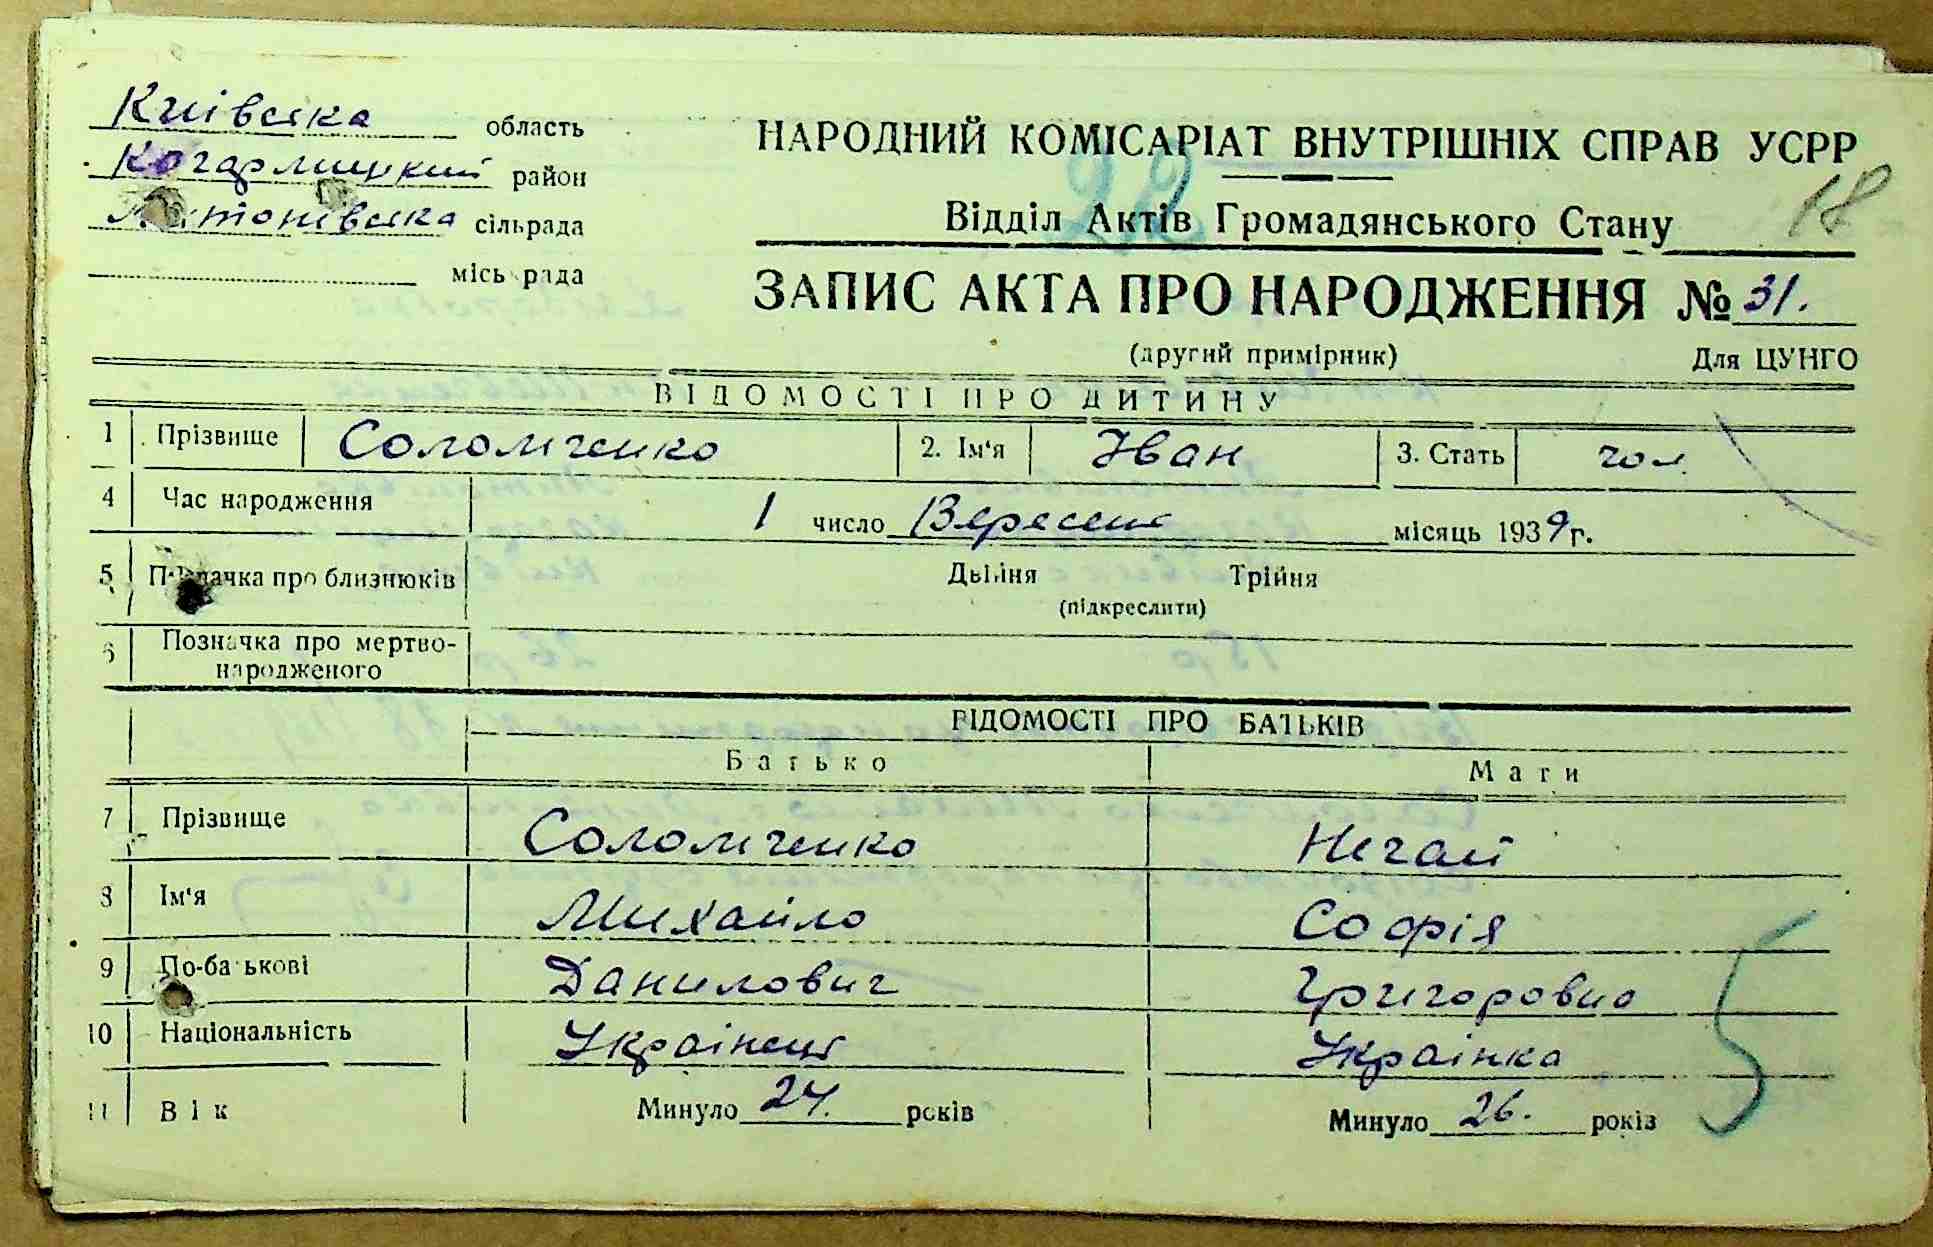 Київська область
Кагарлицький район
Антонівська сільрада
міськрада
НАРОДНИЙ КОМІСАРІАТ ВНУТРІШНІХ СПРАВ УСРР
22
18
Відділ Актів Громадянського Стану
ЗАПИС АКТА ПРО НАРОДЖЕННЯ № 31.
(другий примірник) Для ЦУНГО
ВІДОМОСТІ ПРО ДИТИНУ
1 Прізвище Соломченко 2. Ім'я Іван 3. Стать чол
4 Час народження 1 число Вересень місяць 1939 г.
5 Позначка про близнюків Двійня Трійня
(підкреслити)
6 Позначка про мертво-
народженого
ВІДОМОСТІ ПРО БАТЬКІВ
Батько Мати
7 Прізвище Соломченко Нечай
8 Ім'я Михайло Софія
9 По-батькові Данилович Григоровна
10 Національність Українець Українка
11 Вік Минуло 24. років Минуло 26. років
5